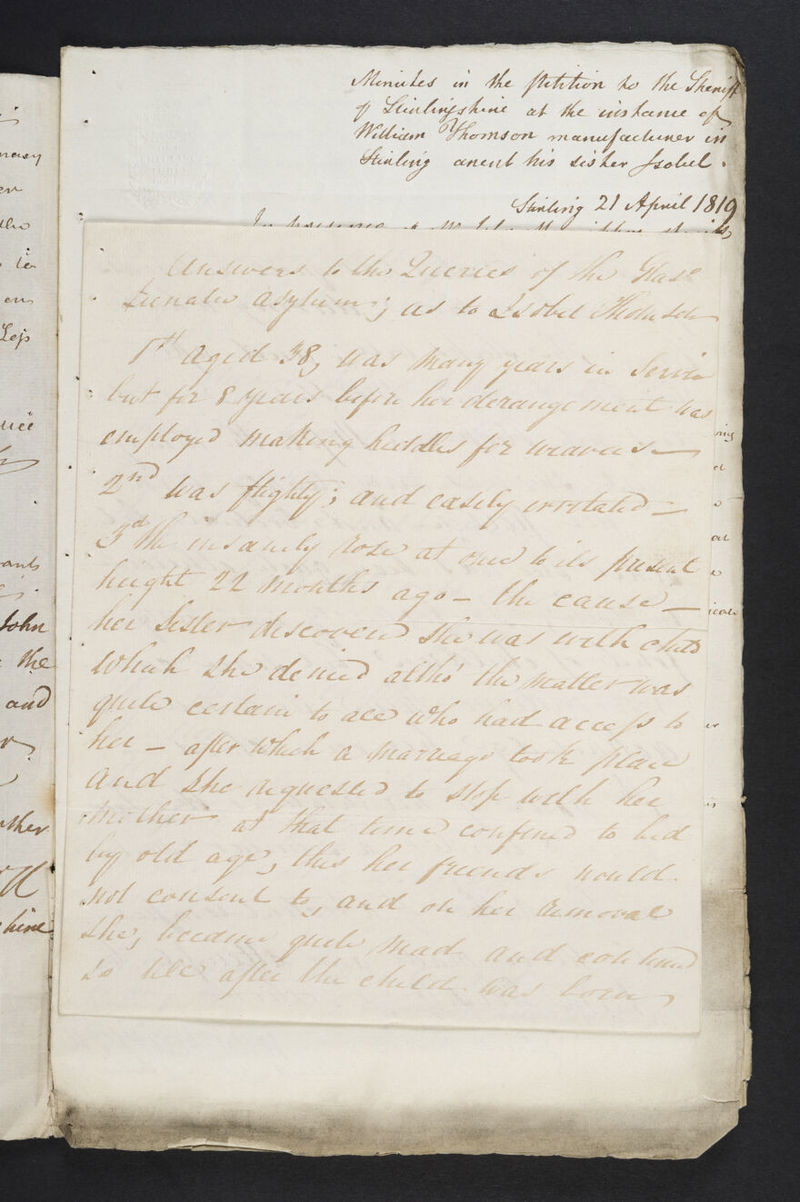 Minutes in the Petition to the Sheriff
of Stirlingshire at the instance of
William Thomson manufacturer in
Stirling anent his sister Isobel.
Stirling 21 April 1819
In presence of
Answers to the Queries of the Glasw
Lunatic Asylum; as to Isobel Thomson
1st Aged 38, was many years in Service
but for 8 years before her derangement was
employed making heddles for weavers —
2nd was flighty; and easily irritated —
3d The insanity rose at once to its present
height 22 months ago — the cause —
her Sister discovered she was with child
which she denied altho' the matter was
quite certain to all who had access to
her — after which a marriage took place
and she requested to stop with her
Mother at that time confined to bed
by old age, this her friends would
not consent to, and on her removal
she, became quite mad and continued
so till after the child was born,
John
the
and